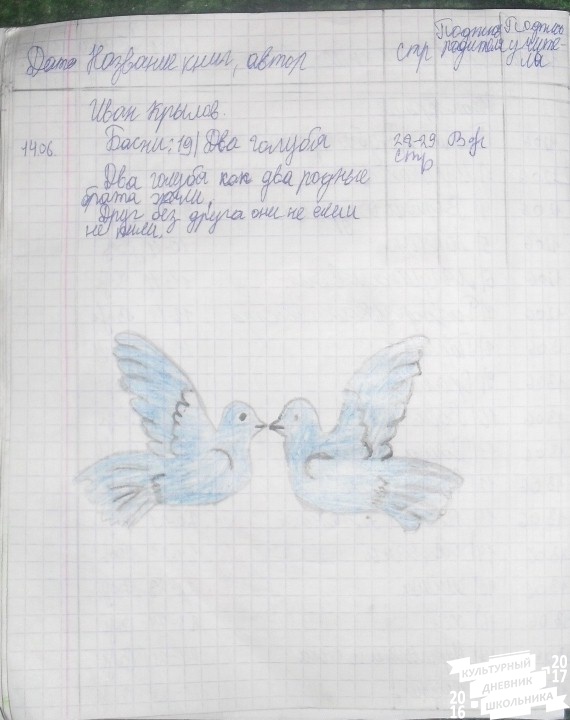 Дата Название книг, автор стр Подпись родителя Подпись учителя
Иван Крылов.
14.06. Басни: 19) Два голубя 24-29 стр
Два голубя как два родные
брата жили,
Друг без друга они не ели
не пили.
КУЛЬТУРНЫЙ
ДНЕВНИК
ШКОЛЬНИКА
2016
2017